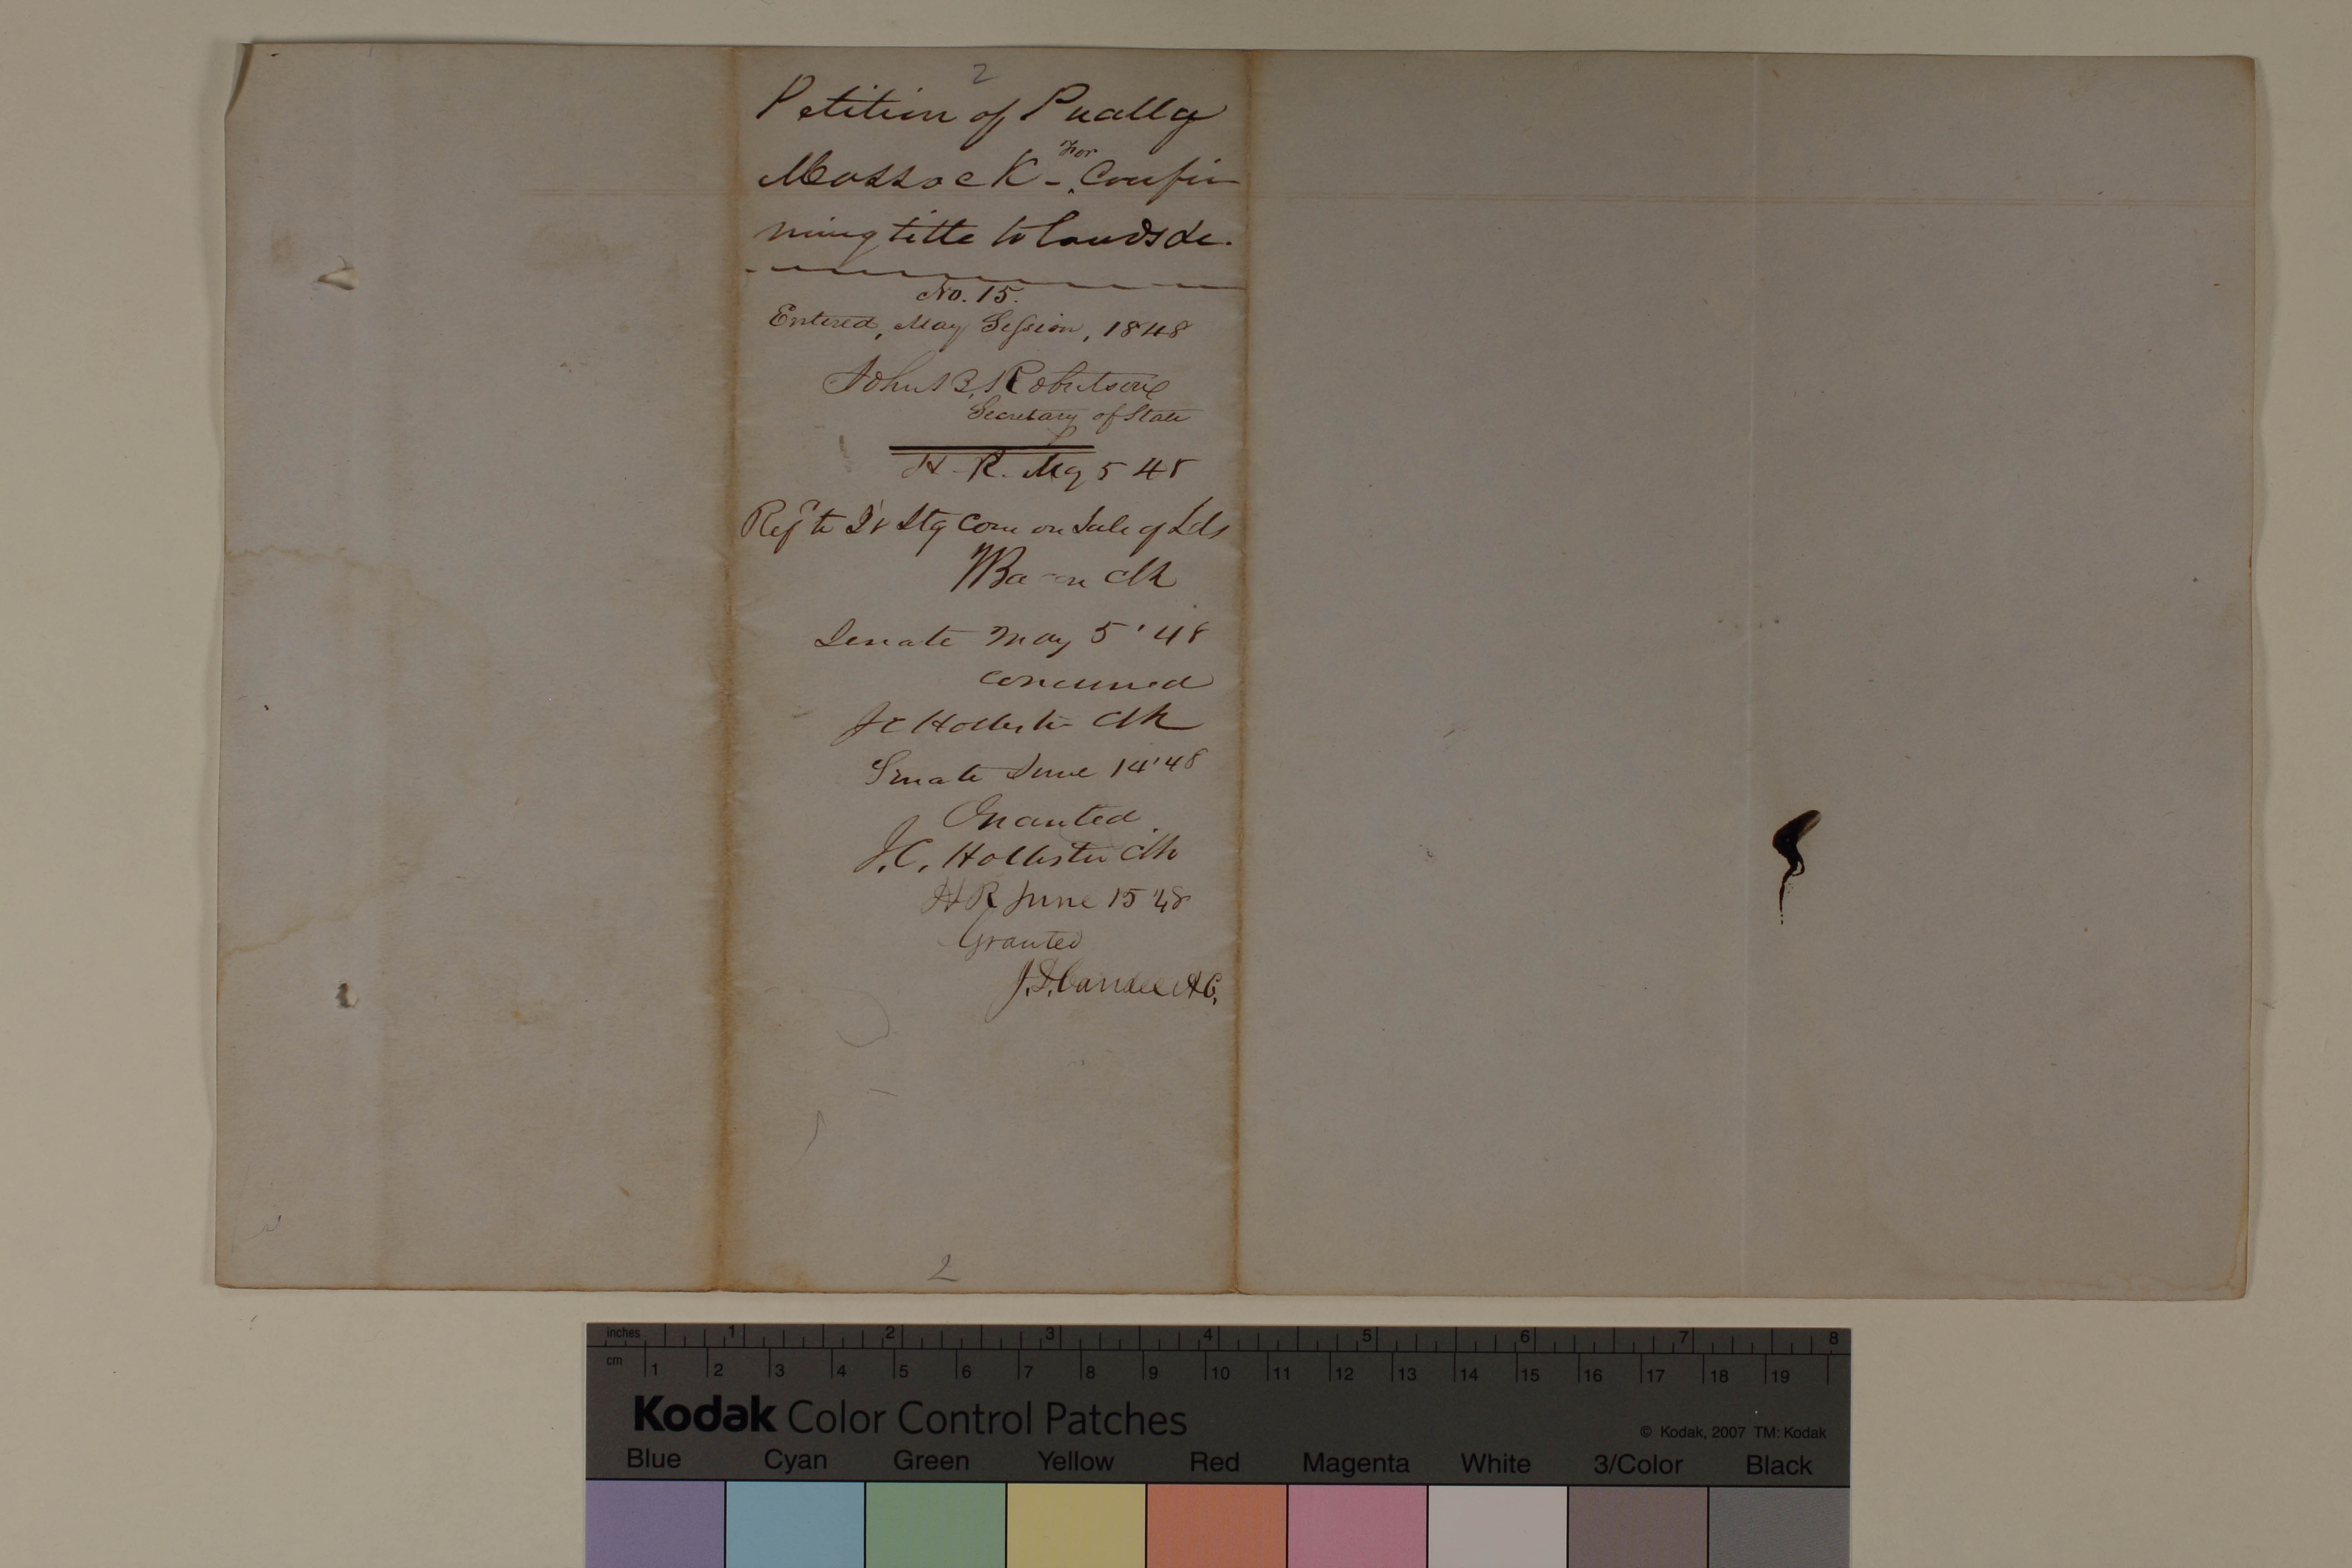 2
Petition of Pually
Mossock - For Confir
ming title to lands &c.
No. 15.
Entered, May Session, 1848
John B. Robertson
Secretary of State
H. R. My 5 48
Refd to Jt Stg Com on Sale of Lds
Bacon Clk
Senate May 5 '48
concurred
J C Hollister Clk
Senate June 14 '48
Granted
J. C. Hollister Clk
H R June 15 '48
Granted
J. D. Candee A C.
2
inches 1 2 3 4 5 6 7 8
cm 1 2 3 4 5 6 7 8 9 10 11 12 13 14 15 16 17 18 19
Kodak Color Control Patches
© Kodak, 2007 TM: Kodak
Blue Cyan Green Yellow Red Magenta White 3/Color Black